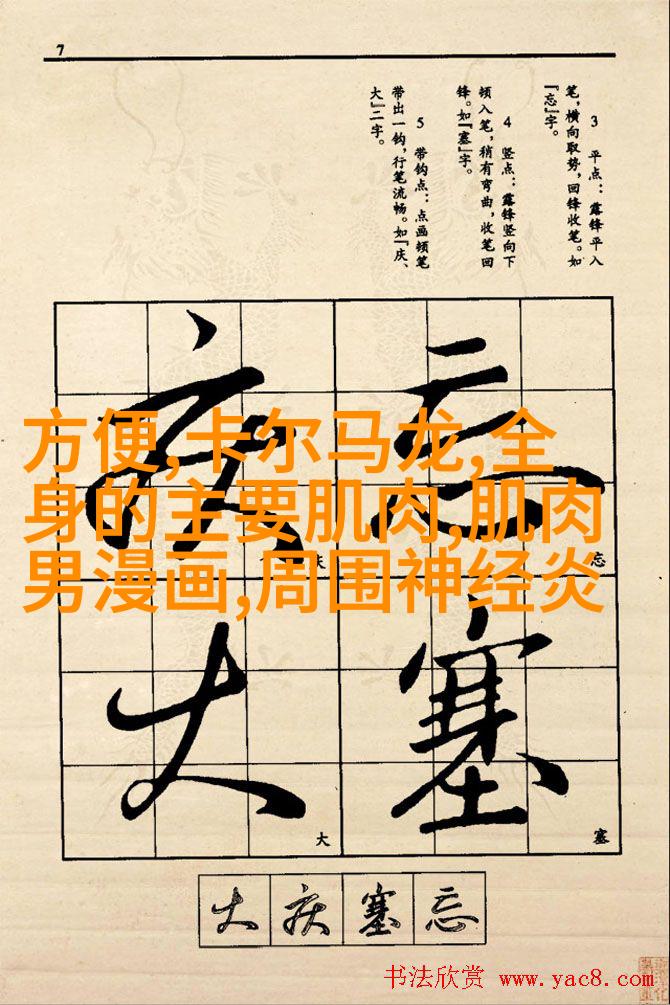 7
3 平点：露锋平入
笔，横向取势，回锋收笔。如
『忘』字。
4 竖点：露锋竖向下
顿入笔，稍有弯曲，收笔回
锋。如『塞』字。
5 带钩点：点画顿笔
带出一钩，行笔流畅。如『庆、
大』二字。
庆 忘
方便,卡尔马龙,全
身的主要肌肉,肌肉
男漫画,周围神经炎
庆 忘
大 塞
大 塞
大 庆 塞 忘
书法欣赏 www.yac8.com